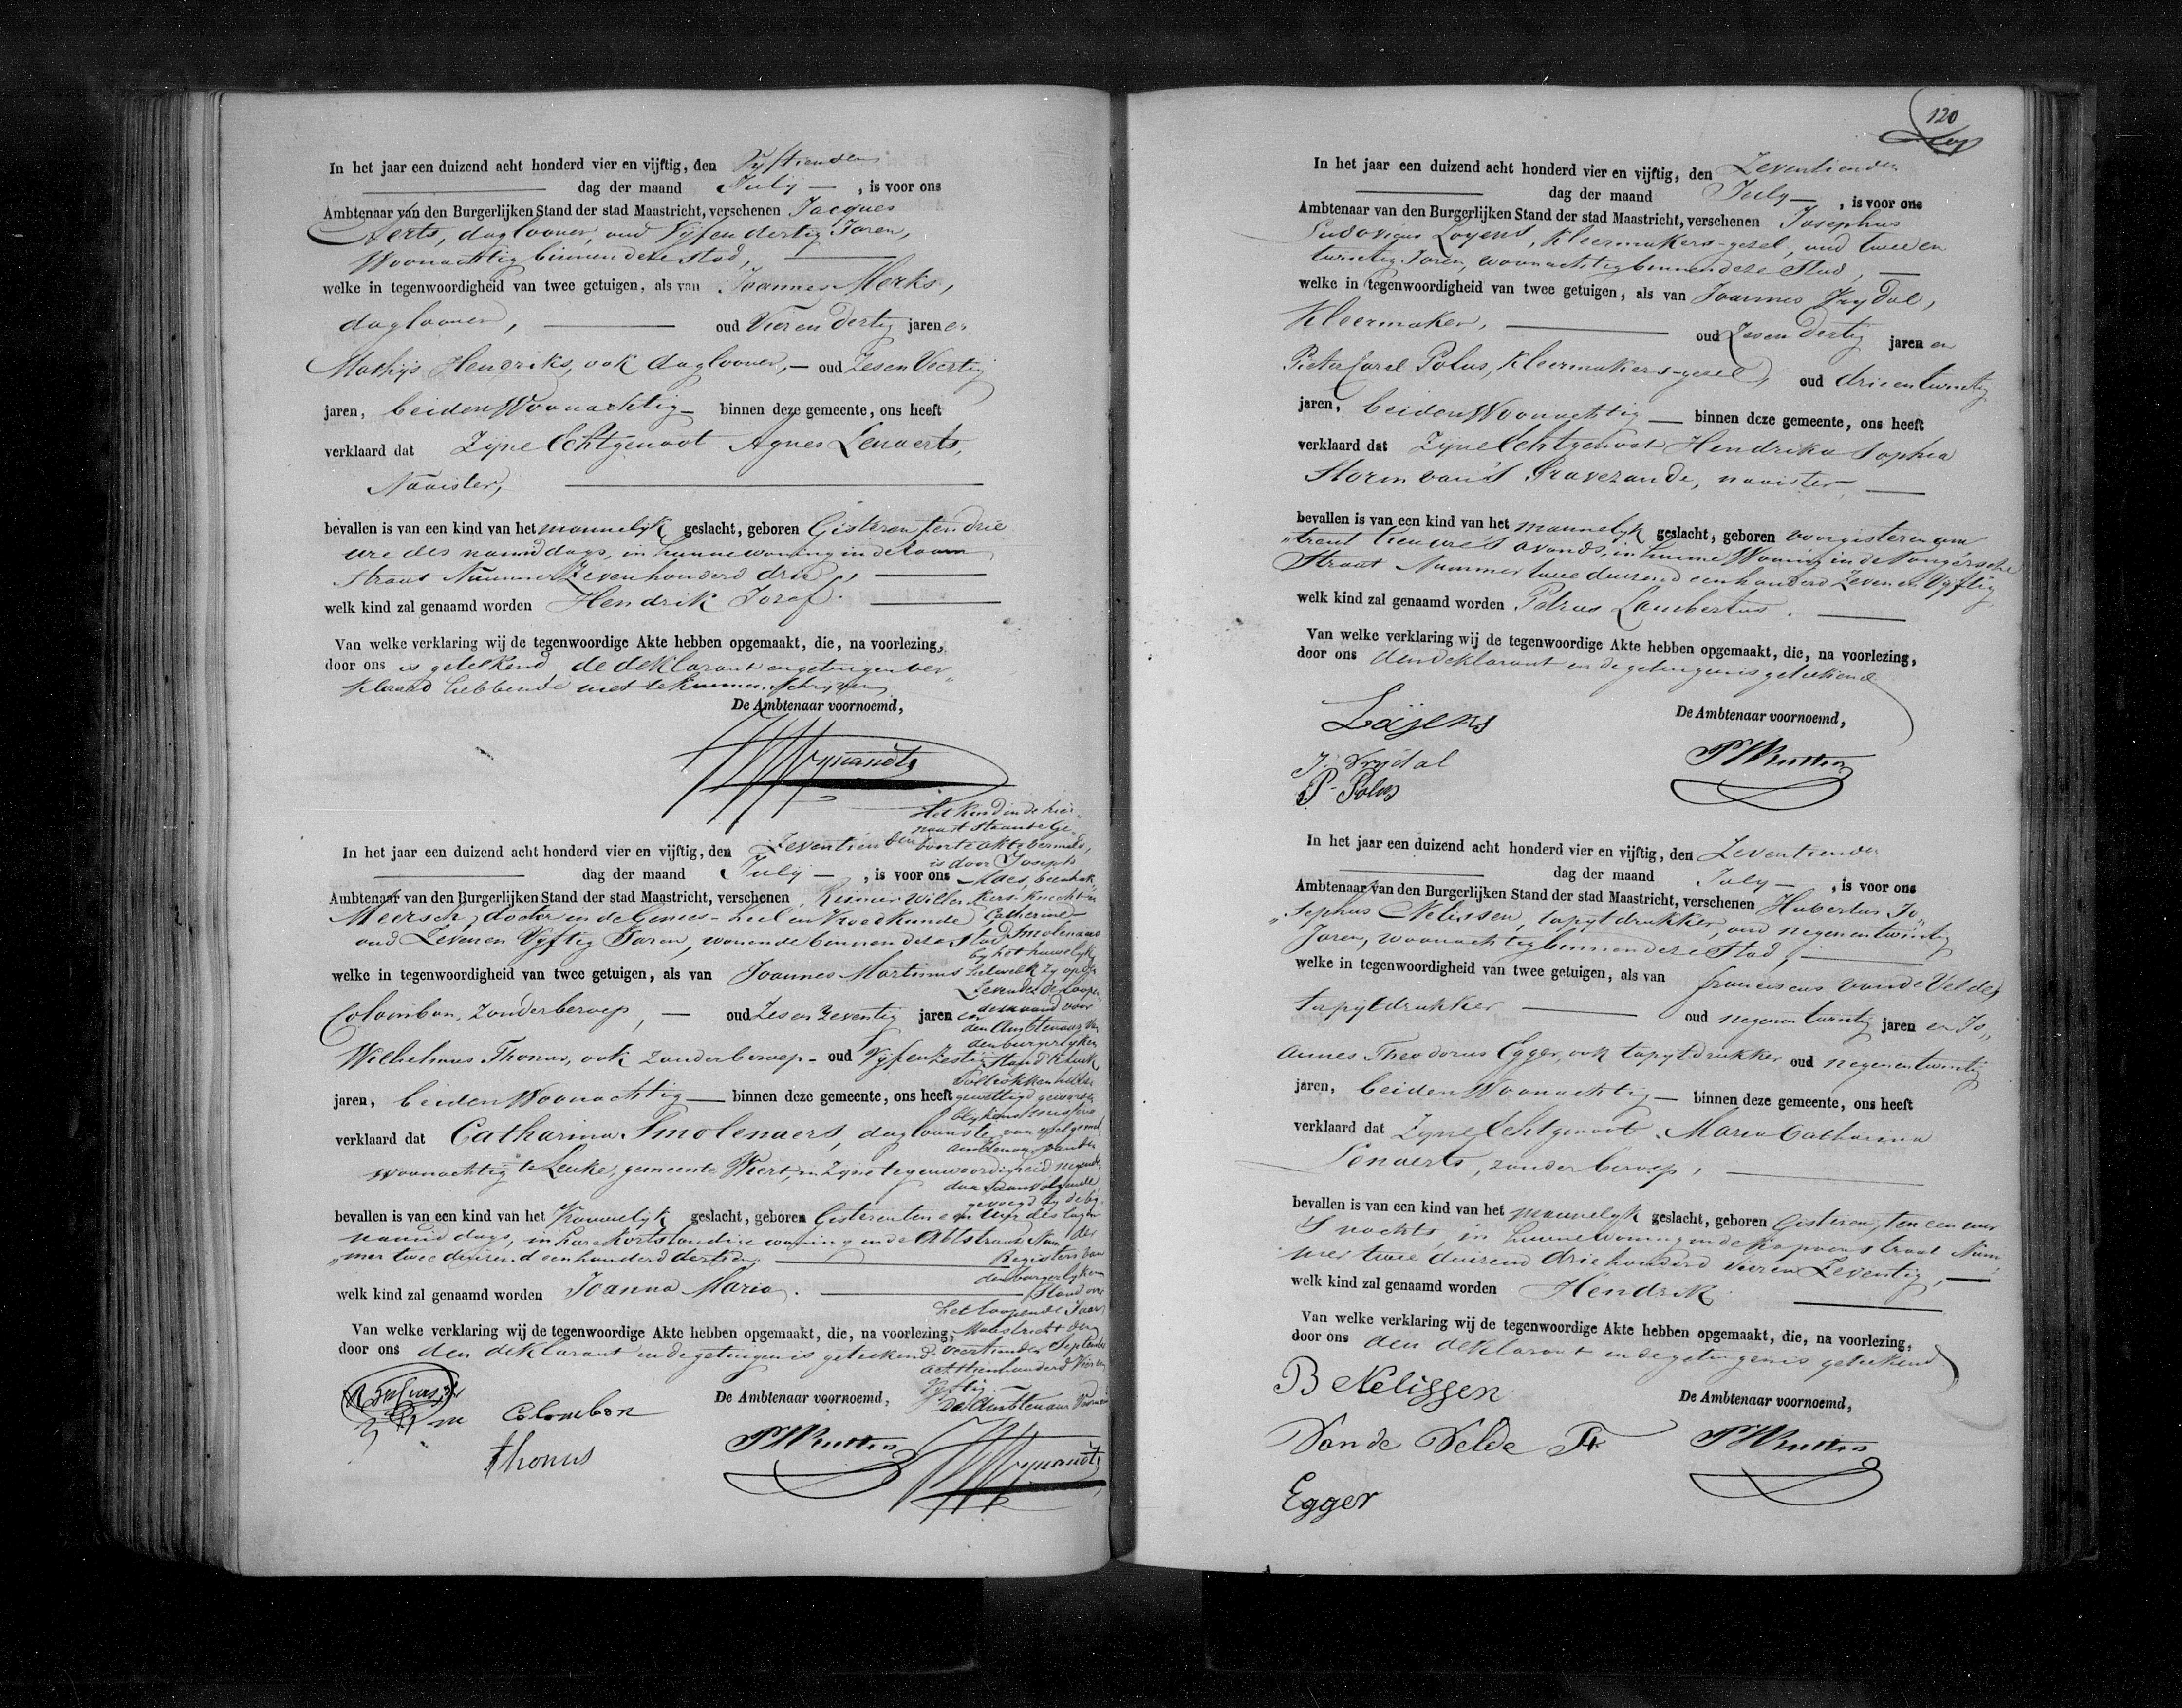 In het jaar een duizend acht honderd vier en vijftig, den Vyftienden
dag der maand July , is voor ons
Ambtenaar van den Burgerlijken Stand der stad Maastricht, verschenen Jacques
Aerts, daglooner, oud Vyf en dertig Jaren,
Woonachtig binnen deze stad,
welke in tegenwoordigheid van twee getuigen, als van Joannes Merks,
daglooner, oud Vier en dertig jaren en
Mathys Hendriks, ook daglooner, oud Zes en Veertig
jaren, beiden Woonachtig binnen deze gemeente, ons heeft
verklaard dat Zyne Echtgenoot Agnes Lenaerts,
Naaister,
bevallen is van een kind van het mannelyk geslacht, geboren Gisteren ten drie
ure des namiddags, in hunne woning in de
Straat Nummer Zevenhonderd drie,
welk kind zal genaamd worden Hendrik Jozef.
Van welke verklaring wij de tegenwoordige Akte hebben opgemaakt, die, na voorlezing,
door ons is geteekend de deklarant en getuigen ver„
klaard hebbende niet te kunnen schryven
De Ambtenaar voornoemd,
In het jaar een duizend acht honderd vier en vijftig, den Zeventienden
dag der maand July , is voor ons
Ambtenaar van den Burgerlijken Stand der stad Maastricht, verschenen Reinier Willem
Meersch, doctor in de Genees- heel en Vroedkunde
oud Zeven en Vyftig Jaren, wonende binnen deze stad
welke in tegenwoordigheid van twee getuigen, als van Joannes Martinus
Colombon, Zonder beroep, oud Zes en Zeventig jaren en
Wilhelmus Thonus, ook zonder beroep oud Vyf en Zestig
jaren, beiden Woonachtig binnen deze gemeente, ons heeft
verklaard dat Catharina Smolenaers, daglooonster,
Woonachtig te Leuke, gemeente Weert, in Zyne tegenwoordigheid
bevallen is van een kind van het Vrouwelyk geslacht, geboren Gisteren ten een ure des
namiddags, in hare Kortstondige woning in de Abtstraat Num
„mer twee duizend een honderd dertien,
welk kind zal genaamd worden Joanna Maria.
Van welke verklaring wij de tegenwoordige Akte hebben opgemaakt, die, na voorlezing,
door ons den deklarant en de getuigen is geteekend
De Ambtenaar voornoemd,
Colombon
Thonus
Het kind in de hier„
naast staande Ge„
boorte akte vermeld,
is door Joseph
Maes,
Knecht en
Catherine
Smolenaars
by het huwelyk
hetwelk zy op den
Zevenden de loopen„
de maand voor
den Ambtenaar van
den burgerlyken
Stand
voltrokken hebben
gewettigd geworden
Registers van
den burgerlyken
Stand over
het loopende Jaar
Maastricht den
veertienden September
achttienhonderd Vier en
Vyftig.
De Ambtenaar Voornoemd
120
In het jaar een duizend acht honderd vier en vijftig, den Zeventienden
dag der maand July , is voor ons
Ambtenaar van den Burgerlijken Stand der stad Maastricht, verschenen Josephus
Ludovicus Loyens, Kleermakers-gezel, oud twee en
twintig Jaren, woonachtig binnen deze Stad,
welke in tegenwoordigheid van twee getuigen, als van Joannes Vrydal,
Kleermaker, oud Zes en dertig jaren en
Pieter Carel Polus, Kleermakers-gezel, oud drie en twintig
jaren, beiden Woonachtig binnen deze gemeente, ons heeft
verklaard dat Zyne Echtgenoot Hendrika Sophia
Storm van 's Gravezande, naaister,
bevallen is van een kind van het mannelyk geslacht, geboren voorgisteren om„
„trent tien ure 's avonds, in hunne Woning in de Tongersche
Straat Nummer twee duizend een honderd Zeven en Vyftig
welk kind zal genaamd worden Petrus Lambertus.
Van welke verklaring wij de tegenwoordige Akte hebben opgemaakt, die, na voorlezing,
door ons den deklarant en de getuigen is geteekend
De Ambtenaar voornoemd,
Loijens
J. Vrijdal
P. Polus
In het jaar een duizend acht honderd vier en vijftig, den Zeventienden
dag der maand July , is voor ons
Ambtenaar van den Burgerlijken Stand der stad Maastricht, verschenen Hubertus Jo„
„sephus Nelissen, tapytdrukker, oud negen en twintig
Jaren, woonachtig binnen deze Stad,
welke in tegenwoordigheid van twee getuigen, als van Franciscus van de Velde,
tapytdrukker oud negen en twintig jaren en Jo„
annes Theodorus Egger, ook tapytdrukker oud negen en twintig
jaren, beiden Woonachtig binnen deze gemeente, ons heeft
verklaard dat Zyne Echtgenoot Maria Catharina
Lenaerts, zonder beroep,
bevallen is van een kind van het mannelyk geslacht, geboren Gisteren, ten een uur
's nachts, in hunne woning in de Kapoenstraat Num
mer twee duizend drie honderd vier en Zeventig,
welk kind zal genaamd worden Hendrik.
Van welke verklaring wij de tegenwoordige Akte hebben opgemaakt, die, na voorlezing,
door ons den deklarant en de getuigen is geteekend
De Ambtenaar voornoemd,
B Nelissen
Van de Velde Fr
Egger